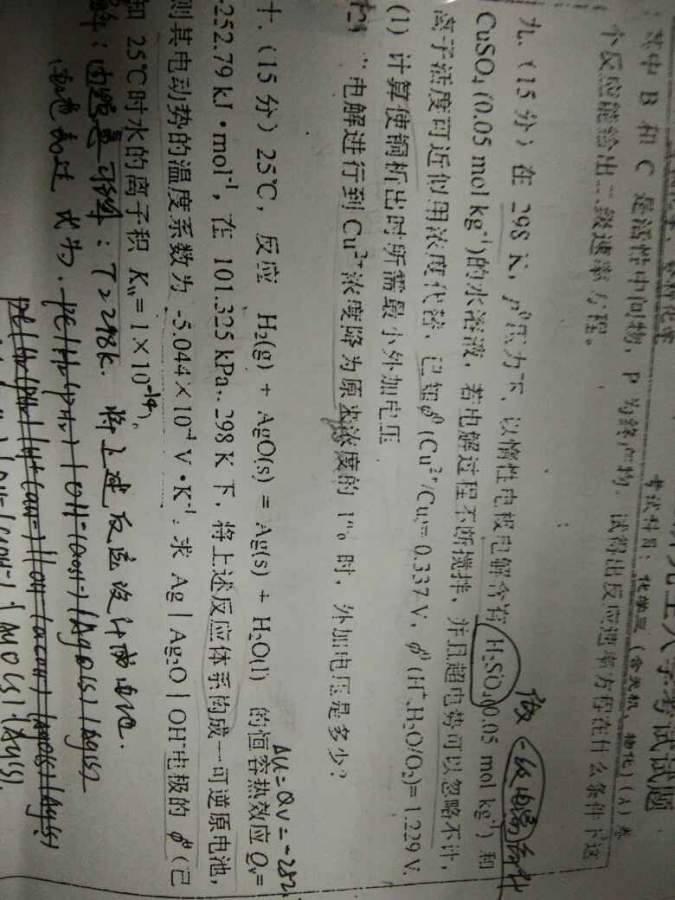 研究生入学考试试题
考试科目：化学三（含无机、物化）（A）卷
其中 B 和 C 是活性中间物，P 为终产物，试得出反应速率方程在什么条件下这
个反应能给出二级速率方程。
九、（15 分）在 298 K，p⁰压力下，以惰性电极电解含有 H₂SO₄(0.05 mol kg⁻¹) 和
CuSO₄ (0.05 mol kg⁻¹)的水溶液，若电解过程不断搅拌，并且超电势可以忽略不计，
离子活度可近似用浓度代替，已知 ϕ⁰ (Cu²⁺/Cu)=0.337 V，ϕ⁰ (H⁺,H₂O/O₂)=1.229 V.
(1) 计算使铜析出时所需最小外加电压
电解进行到 Cu²⁺浓度降为原来浓度的 1%时，外加电压是多少?
做一级电离
ΔU=Qv=-252.
十、（15 分）25℃，反应 H₂(g) + AgO(s) = Ag(s) + H₂O(l) 的恒容热效应 Qᵥ=
-252.79 kJ·mol⁻¹，在 101.325 kPa、298 K 下，将上述反应体系构成一可逆原电池，
则其电动势的温度系数为 -5.044×10⁻⁴ V·K⁻¹，求 Ag | Ag₂O | OH⁻电极的 ϕ⁰（已
知 25℃时水的离子积 K_w = 1×10⁻¹⁴)。
解：由题意可知：T=298k. 将上述反应设计成电池.
电池表达式为. pt|H₂(pH₂)|OH⁻(aOH⁻)|AgO(s)|Ag(s)